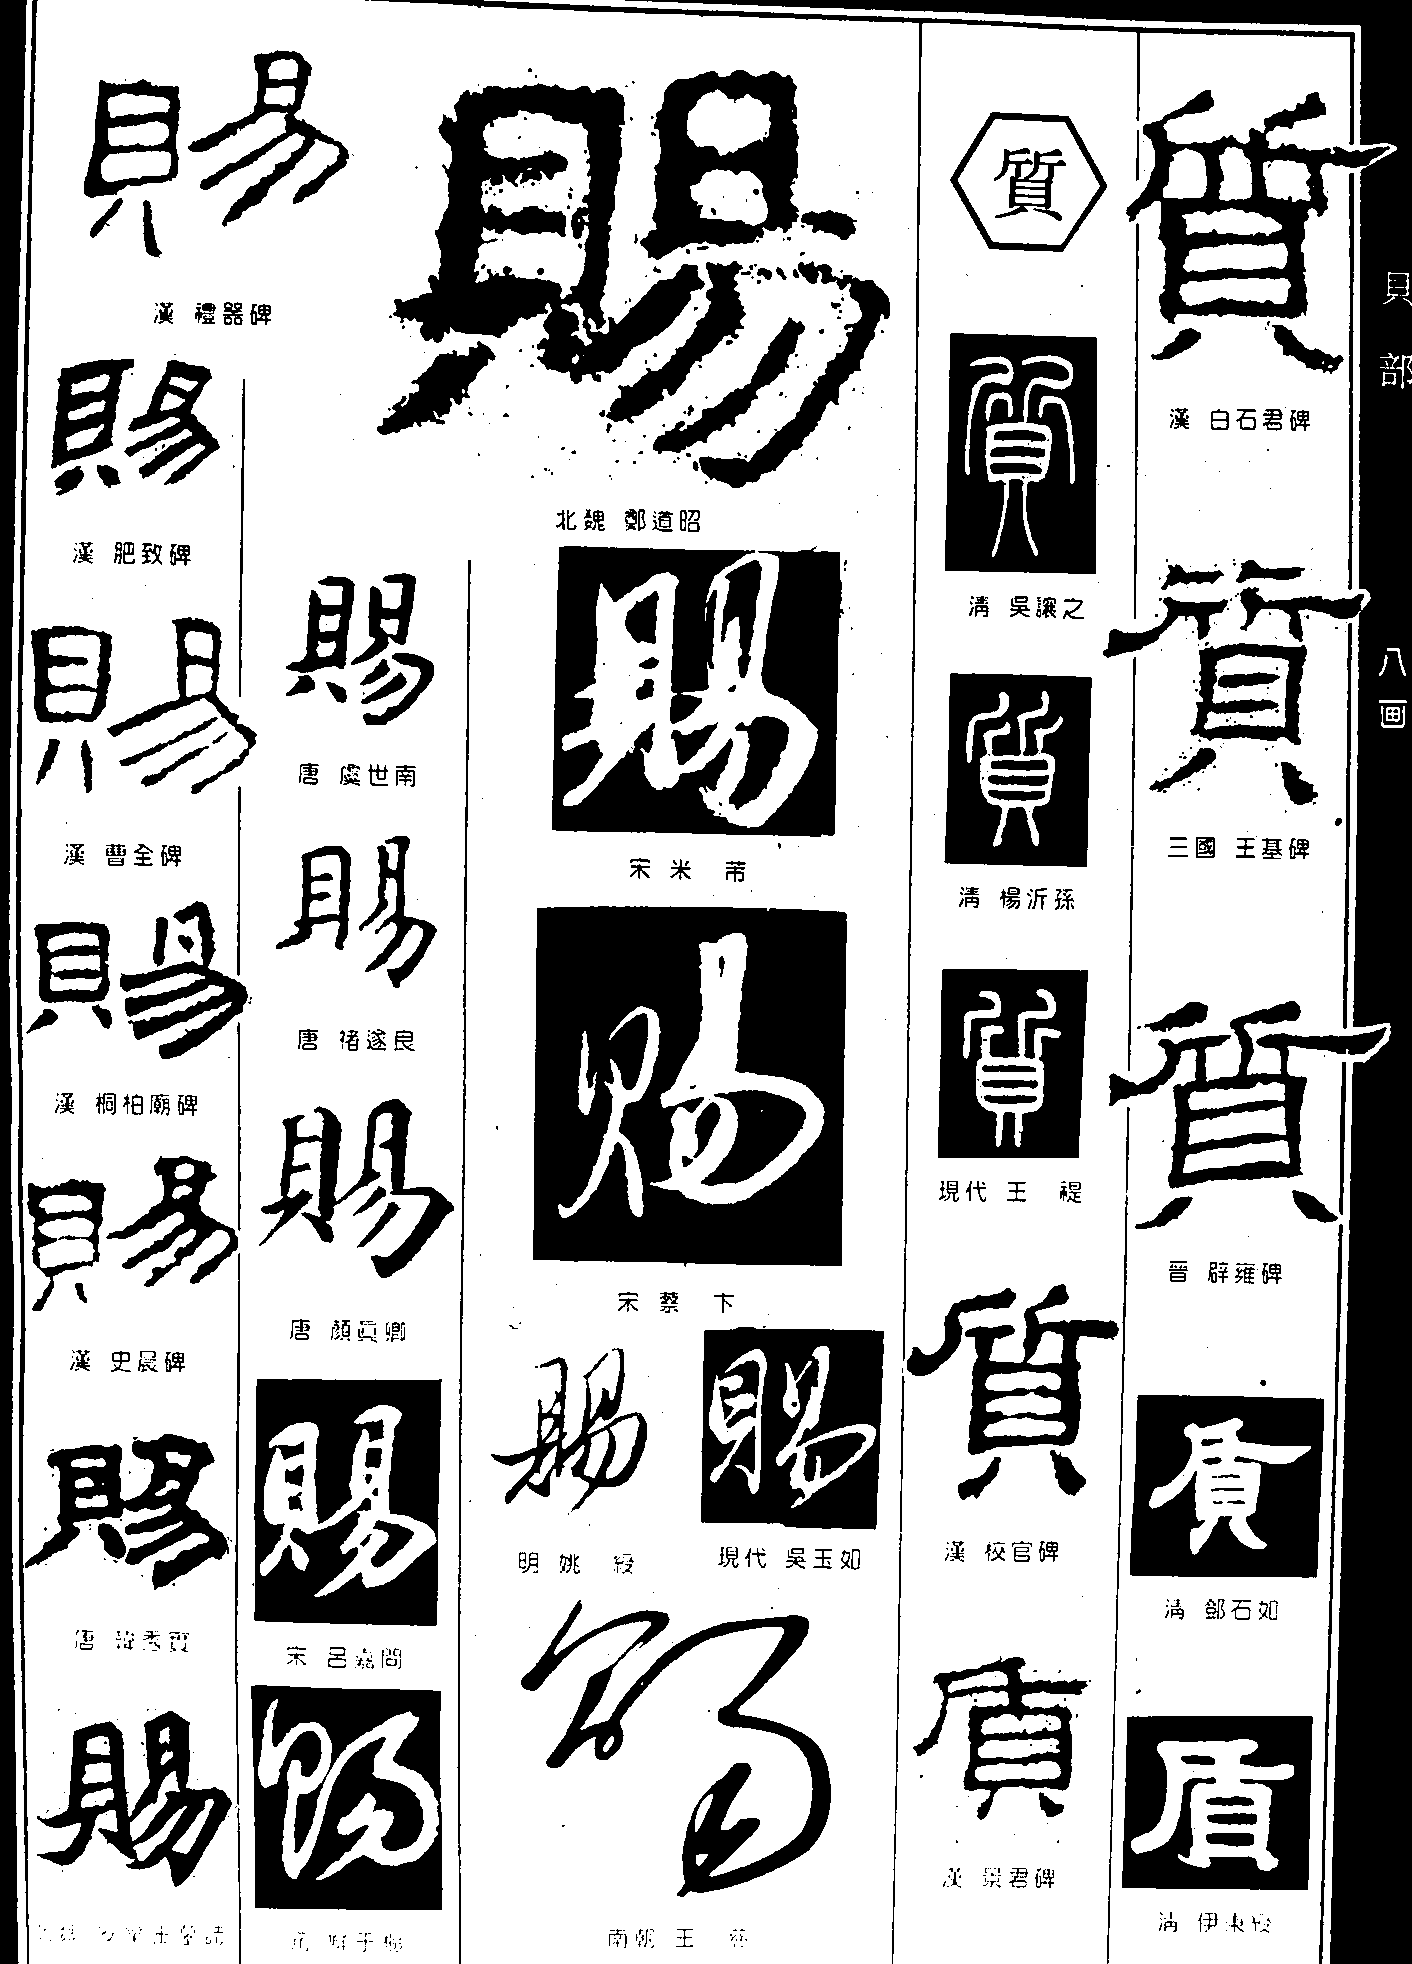 貝部 八画
質
漢 白石君碑
質
三國 王基碑
質
晉 辟雍碑
質
清 鄧石如
質
清 伊秉綬
質
質
清 吳讓之
質
清 楊沂孫
質
現代 王禔
質
漢 校官碑
質
漢 景君碑
賜
北魏 鄭道昭
賜
宋 米芾
賜
宋 蔡卞
賜
明 姚綬
賜
現代 吳玉如
賜
南朝 王慈
賜
唐 虞世南
賜
唐 褚遂良
賜
唐 顏真卿
賜
宋 呂嘉問
賜
賜
漢 禮器碑
賜
漢 肥致碑
賜
漢 曹全碑
賜
漢 桐柏廟碑
賜
漢 史晨碑
賜
唐 韓秀實
賜